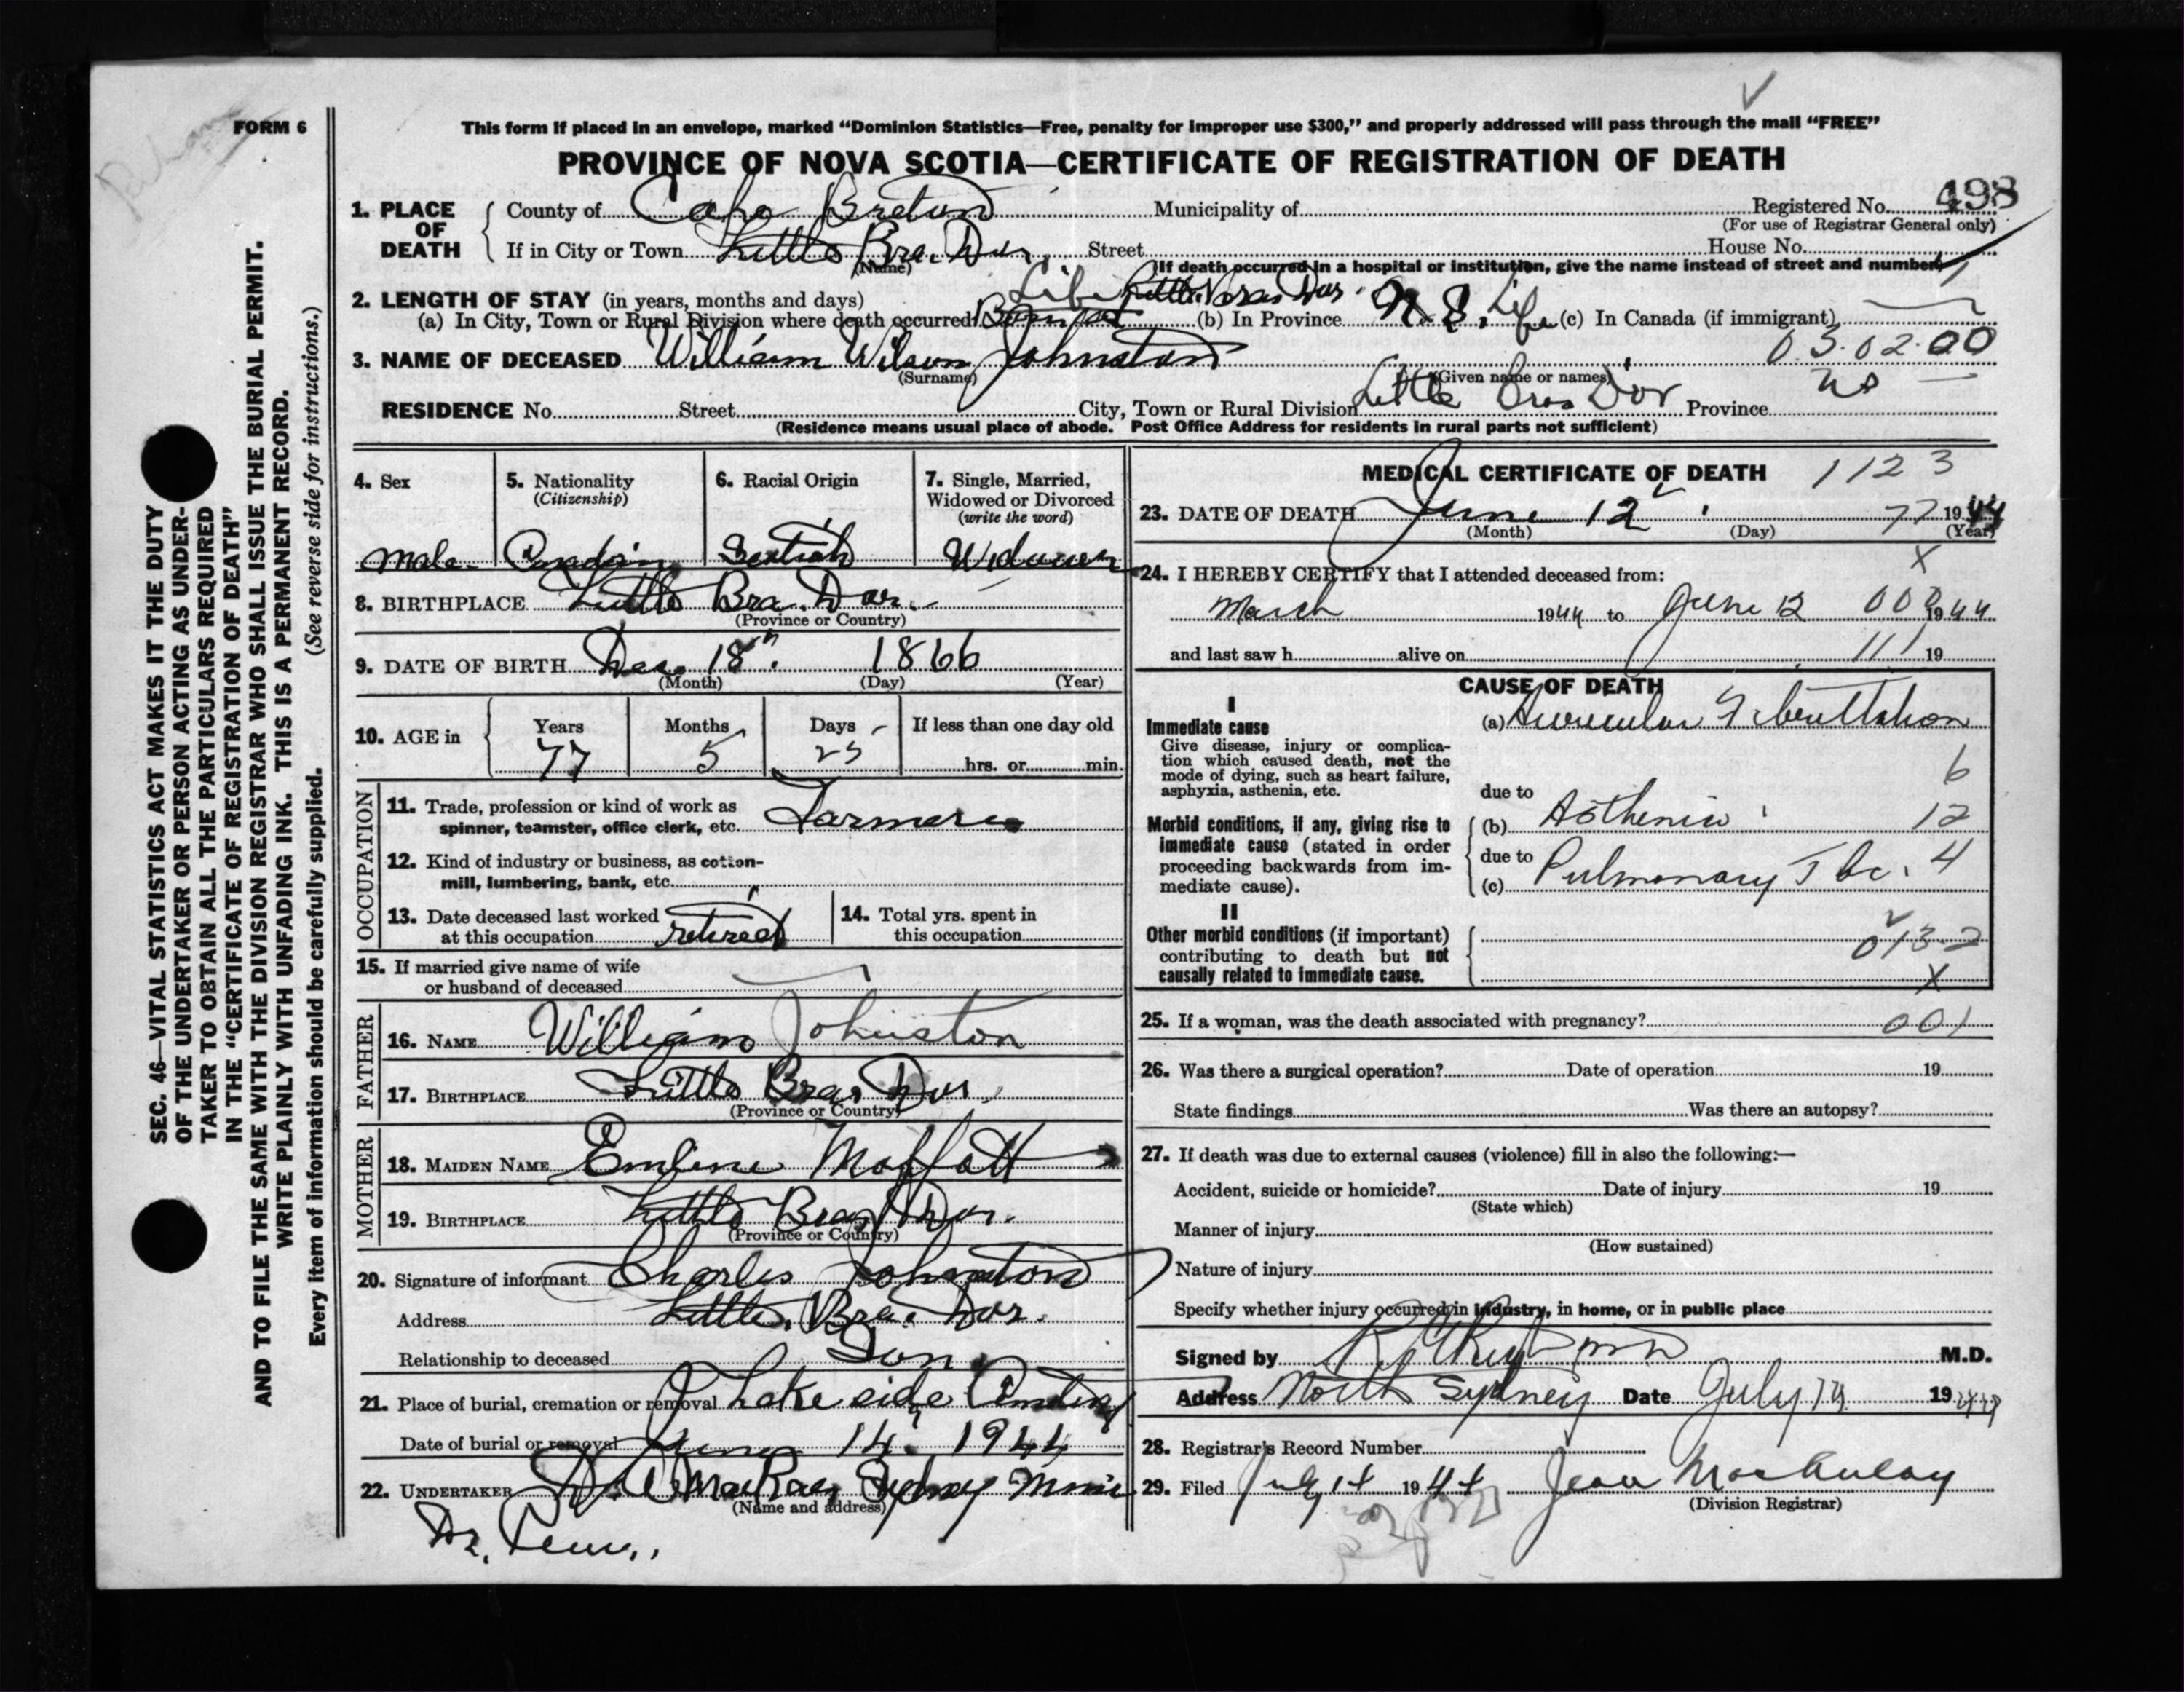 FORM 6
This form if placed in an envelope, marked “Dominion Statistics—Free, penalty for improper use $300,” and properly addressed will pass through the mail “FREE”
PROVINCE OF NOVA SCOTIA—CERTIFICATE OF REGISTRATION OF DEATH
SEC. 46—VITAL STATISTICS ACT MAKES IT THE DUTY
OF THE UNDERTAKER OR PERSON ACTING AS UNDER-
TAKER TO OBTAIN ALL THE PARTICULARS REQUIRED
IN THE “CERTIFICATE OF REGISTRATION OF DEATH”
AND TO FILE THE SAME WITH THE DIVISION REGISTRAR WHO SHALL ISSUE THE BURIAL PERMIT.
WRITE PLAINLY WITH UNFADING INK. THIS IS A PERMANENT RECORD.
Every item of information should be carefully supplied. (See reverse side for instructions.)
1. PLACE OF DEATH County of Cape Breton Municipality of Registered No. 498
(For use of Registrar General only)
If in City or Town Little Bras Dor Street House No.
(Name)
(If death occurred in a hospital or institution, give the name instead of street and number)
2. LENGTH OF STAY (in years, months and days) Life Little Bras Dor
(a) In City, Town or Rural Division where death occurred (b) In Province N.S. Life (c) In Canada (if immigrant)
3. NAME OF DECEASED William Wilson Johnston 03.02.00
(Surname) (Given name or names)
RESIDENCE No. Street City, Town or Rural Division Little Bras Dor Province NS
(Residence means usual place of abode. Post Office Address for residents in rural parts not sufficient)
4. Sex
male
5. Nationality
(Citizenship)
Canadian
6. Racial Origin
Scotish
7. Single, Married,
Widowed or Divorced
(write the word)
Widower
8. BIRTHPLACE Little Bras Dor
(Province or Country)
9. DATE OF BIRTH Dec. 18th 1866
(Month) (Day) (Year)
10. AGE in Years Months Days If less than one day old
77 5 25 hrs. or min.
OCCUPATION
11. Trade, profession or kind of work as
spinner, teamster, office clerk, etc. Farmer
12. Kind of industry or business, as cotton-
mill, lumbering, bank, etc.
13. Date deceased last worked
at this occupation retired
14. Total yrs. spent in
this occupation
15. If married give name of wife
or husband of deceased
FATHER
16. NAME William Johnston
17. BIRTHPLACE Little Bras Dor
(Province or Country)
MOTHER
18. MAIDEN NAME Emline Moffatt
19. BIRTHPLACE Little Bras Dor
(Province or Country)
20. Signature of informant Charles Johnston
Address Little Bras Dor
Relationship to deceased Son
21. Place of burial, cremation or removal Lakeside
Date of burial or removal June 14 1944
22. UNDERTAKER MacRae Sydney Mines
(Name and address)
Dr.
MEDICAL CERTIFICATE OF DEATH 1123
23. DATE OF DEATH June 12 77 1944
(Month) (Day) (Year)
x
24. I HEREBY CERTIFY that I attended deceased from:
March 1944 to June 12 000 1944
and last saw h alive on 111 19
CAUSE OF DEATH
I
Immediate cause
Give disease, injury or complica-
tion which caused death, not the
mode of dying, such as heart failure,
asphyxia, asthenia, etc.
(a) Auricular Fibrillation
6
due to
Morbid conditions, if any, giving rise to
immediate cause (stated in order
proceeding backwards from im-
mediate cause).
(b) Asthenia 12
due to
(c) Pulmonary Tbc. 4
II
Other morbid conditions (if important)
contributing to death but not
causally related to immediate cause.
013.2
X
25. If a woman, was the death associated with pregnancy? 001
26. Was there a surgical operation? Date of operation 19
State findings Was there an autopsy?
27. If death was due to external causes (violence) fill in also the following:—
Accident, suicide or homicide? Date of injury 19
(State which)
Manner of injury
(How sustained)
Nature of injury
Specify whether injury occurred in industry, in home, or in public place
Signed by M.D.
Address North Sydney Date July 1944
28. Registrar's Record Number
29. Filed July 14 1944 Jean MacAulay
(Division Registrar)